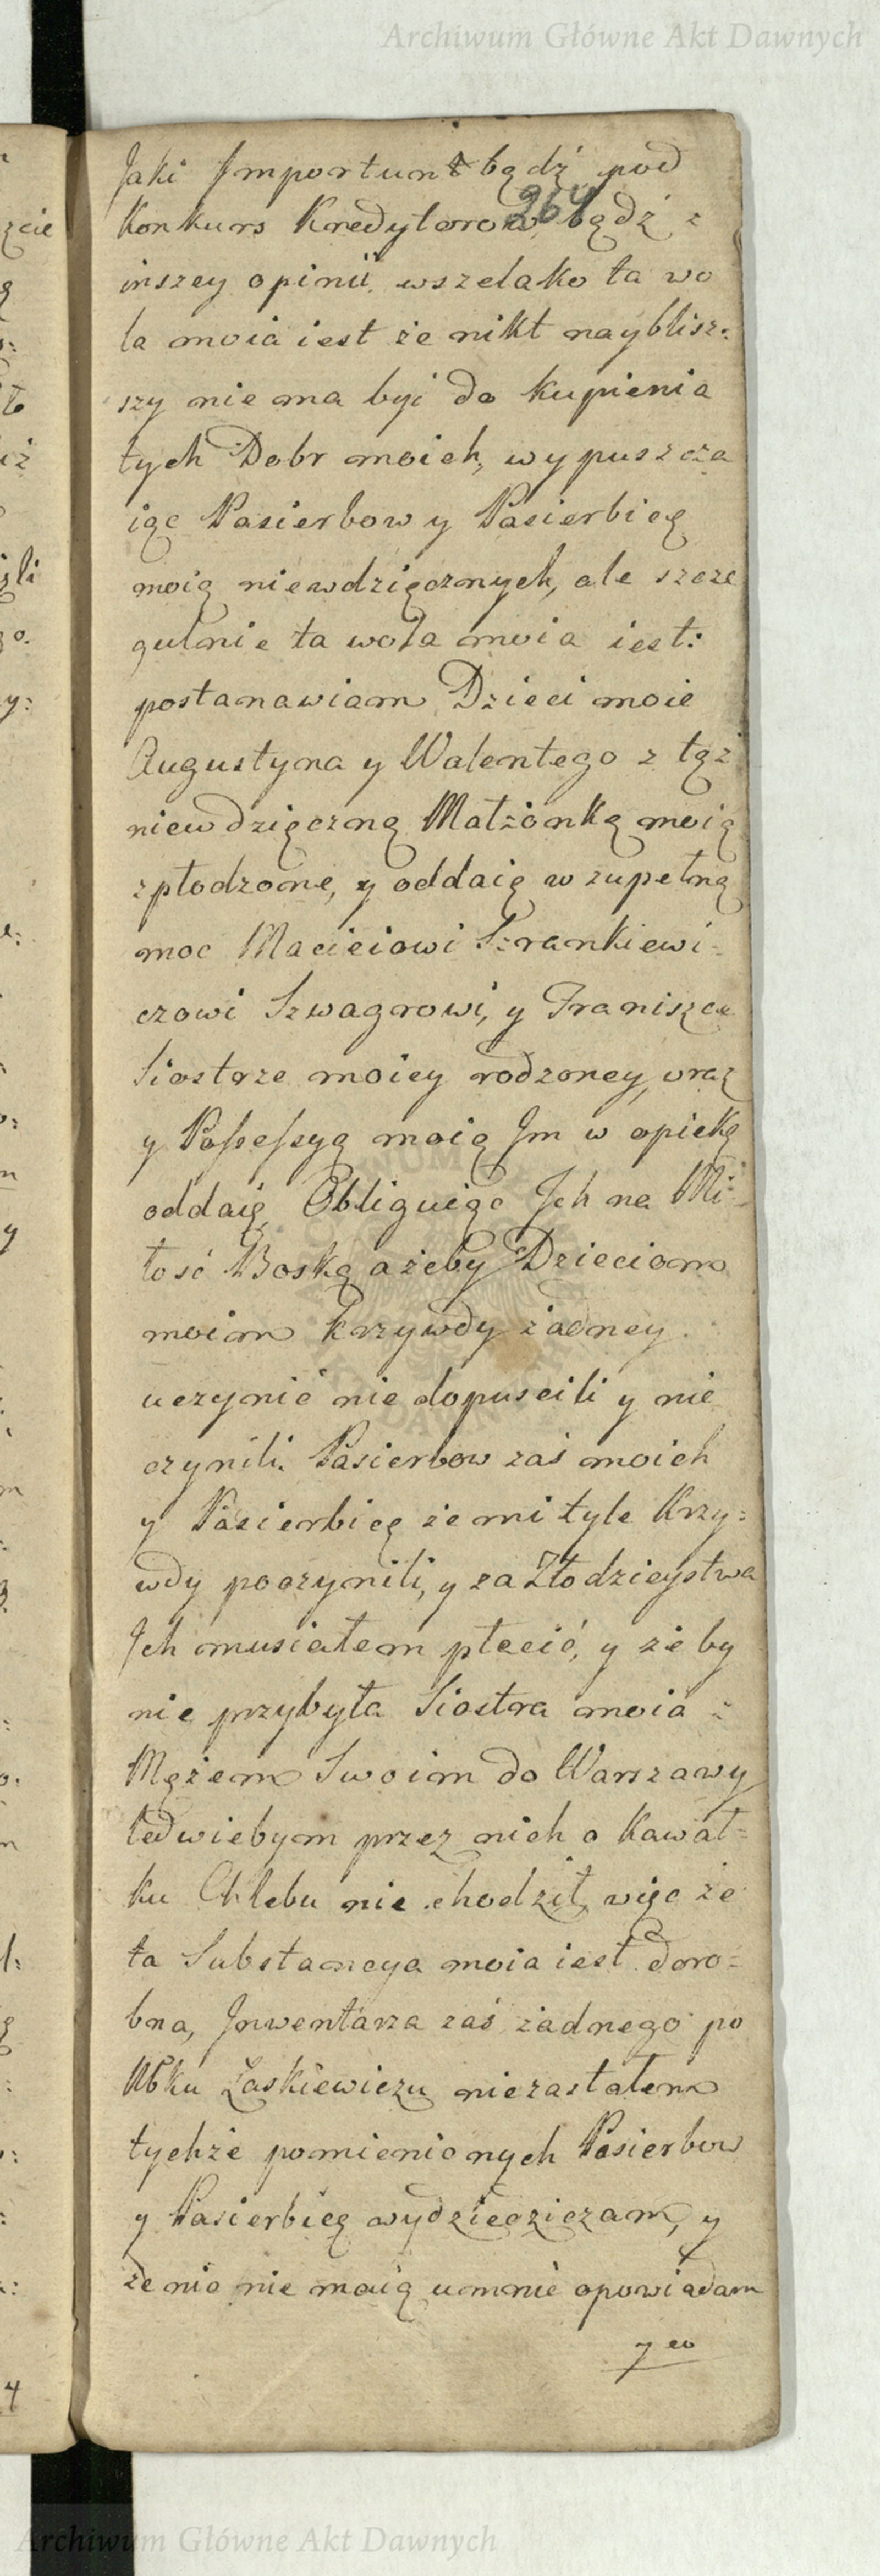 Archiwum Główne Akt Dawnych
Jaki Importunt bądź pod
264
Konkurs Kredytorow, bądź z
inszey opinii wszelako ta wo
la moia iest że nikt nayblisz=
szy nie ma byi do kupienia
tych Dobr moich, wypuszcza
iąc Pasierbow y Pasierbicę
moią niewdzięcznych, ale szcze
gulnie ta wola moia iest:
postanawiam Dzieci moie
Augustyna y Walentego z tąż
niewdzięczną Małżonką moią
zpłodzone, y oddaię w zupełną
moc Macieiowi Szrankiewi=
czowi Szwagrowi, y Franiszce
Siostrze moiey rodzoney, wraz
y Possessyą moią Im w opiekę
oddaię, Obliguiąc Ich na Mi=
łość Boską ażeby Dzieciom
moim krzywdy żadney
uczynić nie dopuscili y nie
czynili. Pasierbow zaś moich
y Pasierbicę że mi tyle Krzy=
wdy poczynili, y za Złodzieystwa
Ich musiałem płacić, y że by
nie przybyła Siostra moia z
Mężem Swoim do Warszawy
ledwiebym przez nich o Kawał=
ku Chleba nie chodził, więc że
ta Substancya moia iest doro=
bna, Inwentarza zaś żadnego po
Nbku Laskiewiczu niezastałem
tychże pomienionych Pasierbow
y Pasierbicę wydziedziczam, y
że nic nie maią umnie opowiadam
y co
Archiwum Główne Akt Dawnych